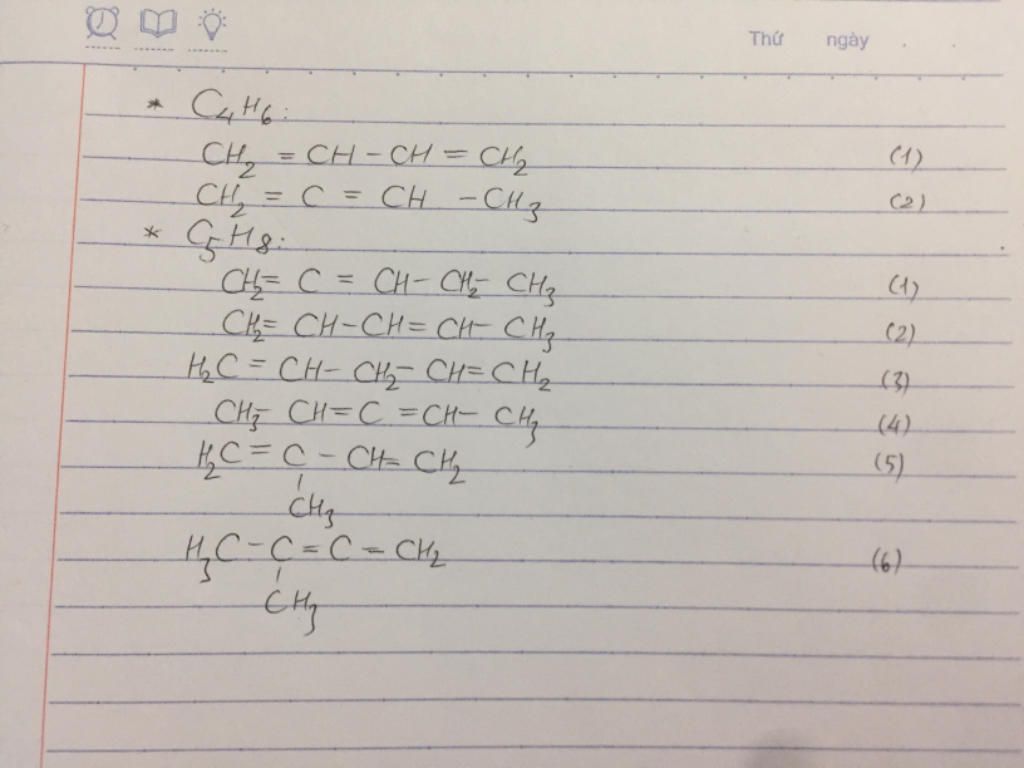 Thứ ngày
* C4H6:
CH2 = CH - CH = CH2 (1)
CH2 = C = CH - CH3 (2)
* C5H8:
CH2 = C = CH - CH2 - CH3 (1)
CH2 = CH - CH = CH - CH3 (2)
H2C = CH - CH2 - CH = CH2 (3)
CH3 - CH = C = CH - CH3 (4)
H2C = C - CH = CH2 (5)
CH3
H3C - C = C = CH2 (6)
CH3